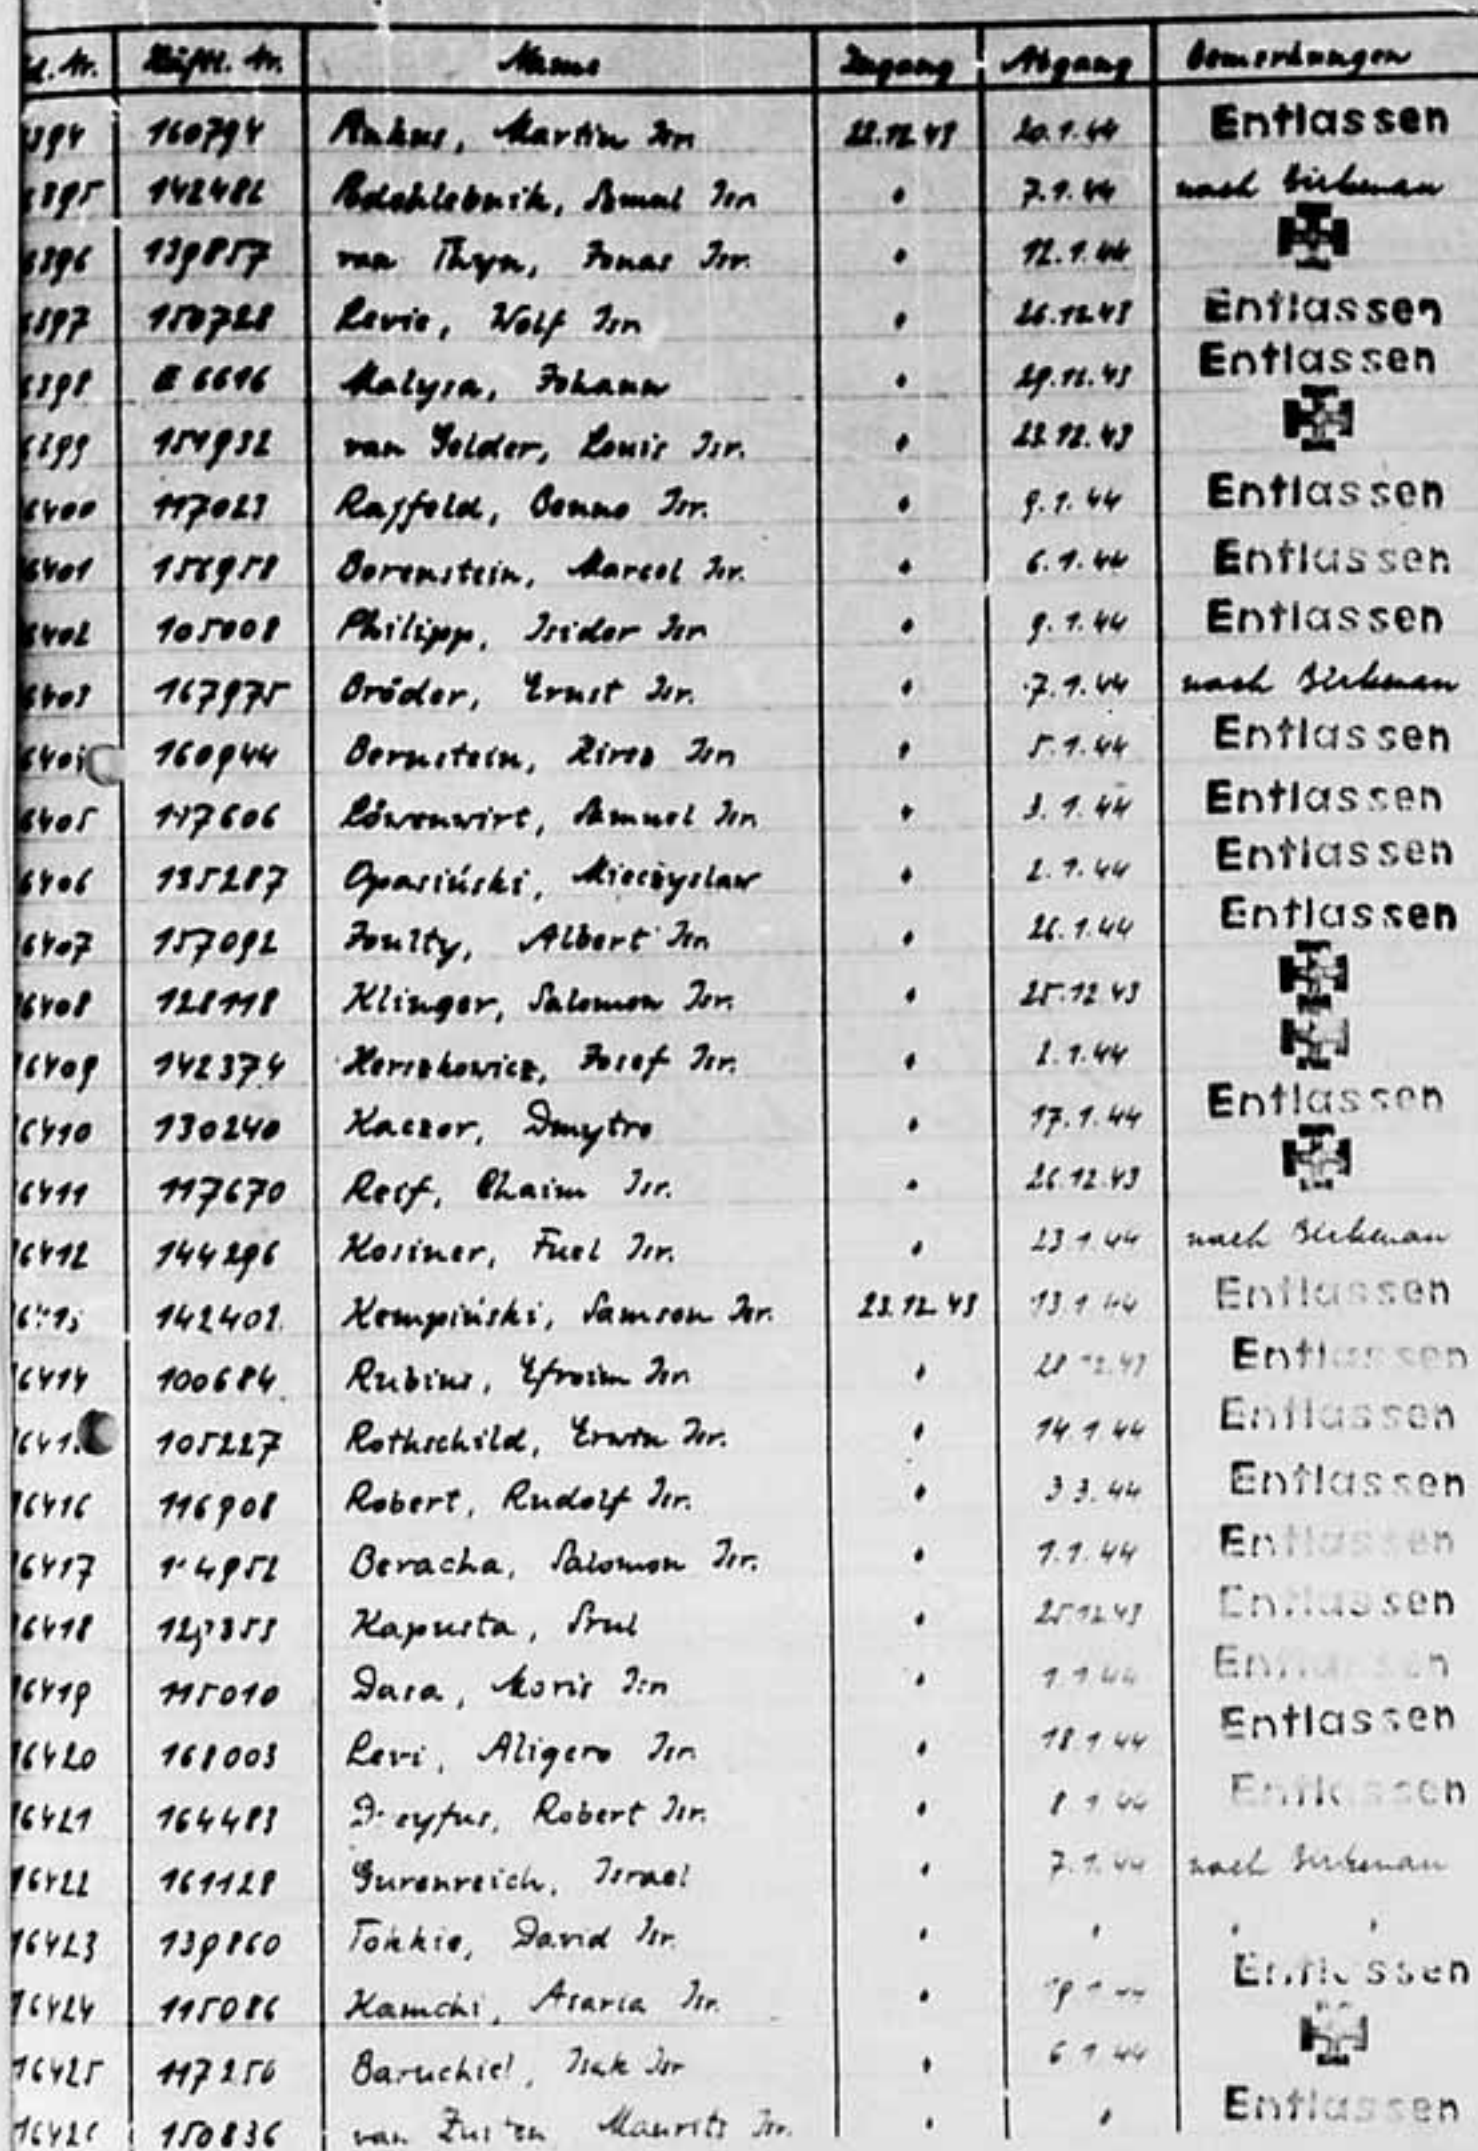 Lfd. Nr. Häftl. Nr. Name Zugang Abgang Bemerkungen
6394 160794 Martin Isr. 22.12.43 20.1.44 Entlassen
6395 142482 Isr. " 7.1.44 nach Birkenau
6396 139857 van Thyn, Jonas Isr. " 12.1.44
6397 150728 Levie, Wolf Isr. " 26.12.43 Entlassen
6398 6616 Malysa, Johann " 29.12.43 Entlassen
6399 151932 van Gelder, Louis Isr. " 23.12.43
6400 117023 Benno Isr. " 9.1.44 Entlassen
6401 156958 Borenstein, Marcel Isr. " 6.1.44 Entlassen
6402 105008 Philipp, Isidor Isr. " 9.1.44 Entlassen
6403 167975 Bröder, Ernst Isr. " 7.1.44 nach Birkenau
640 160944 Bernstein, Isr. " 5.1.44 Entlassen
6405 117606 Löwenwirt, Samuel Isr. " 3.1.44 Entlassen
6406 135287 Opasiński, Mieczyslaw " 2.1.44 Entlassen
6407 157092 Albert Isr. " 26.1.44 Entlassen
16408 128118 Klinger, Salomon Isr. " 25.12.43
16409 142374 Herszkowicz, Josef Isr. " 2.1.44
16410 130240 Kaczor, Dmytro " 17.1.44 Entlassen
16411 117670 Reif, Chaim Isr. " 26.12.43
16412 144296 Kosiner, Isr. " 23.1.44 nach Birkenau
142402 Kempiński, Samson Isr. 23.12.43 13.1.44 Entlassen
16414 100684 Rubins, Efroim Isr. " 28.12.43 Entlassen
1641 105227 Rothschild, Erwin Isr. " 14.1.44 Entlassen
16416 116908 Robert, Rudolf Isr. " 3.3.44 Entlassen
16417 Beracha, Salomon Isr. " 1.1.44 Entlassen
16418 Kapusta, Srul " 25.12.43 Entlassen
16419 115010 Dasa, Moris Isr. " 1.1.44 Entlassen
16420 168003 Levi, Aligero Isr. " 18.1.44 Entlassen
16421 164483 Dreyfus, Robert Isr. " 8.1.44 Entlassen
16422 161128 Gurenreich, Israel " 7.1.44 nach Birkenau
16423 139860 Tokkie, David Isr. " " " "
16424 115086 Kamchi, Asaria Isr. " Entlassen
16425 117256 Baruchiel, Isak Isr " 6.1.44
1642 150836 van Maurits Isr. " " Entlassen